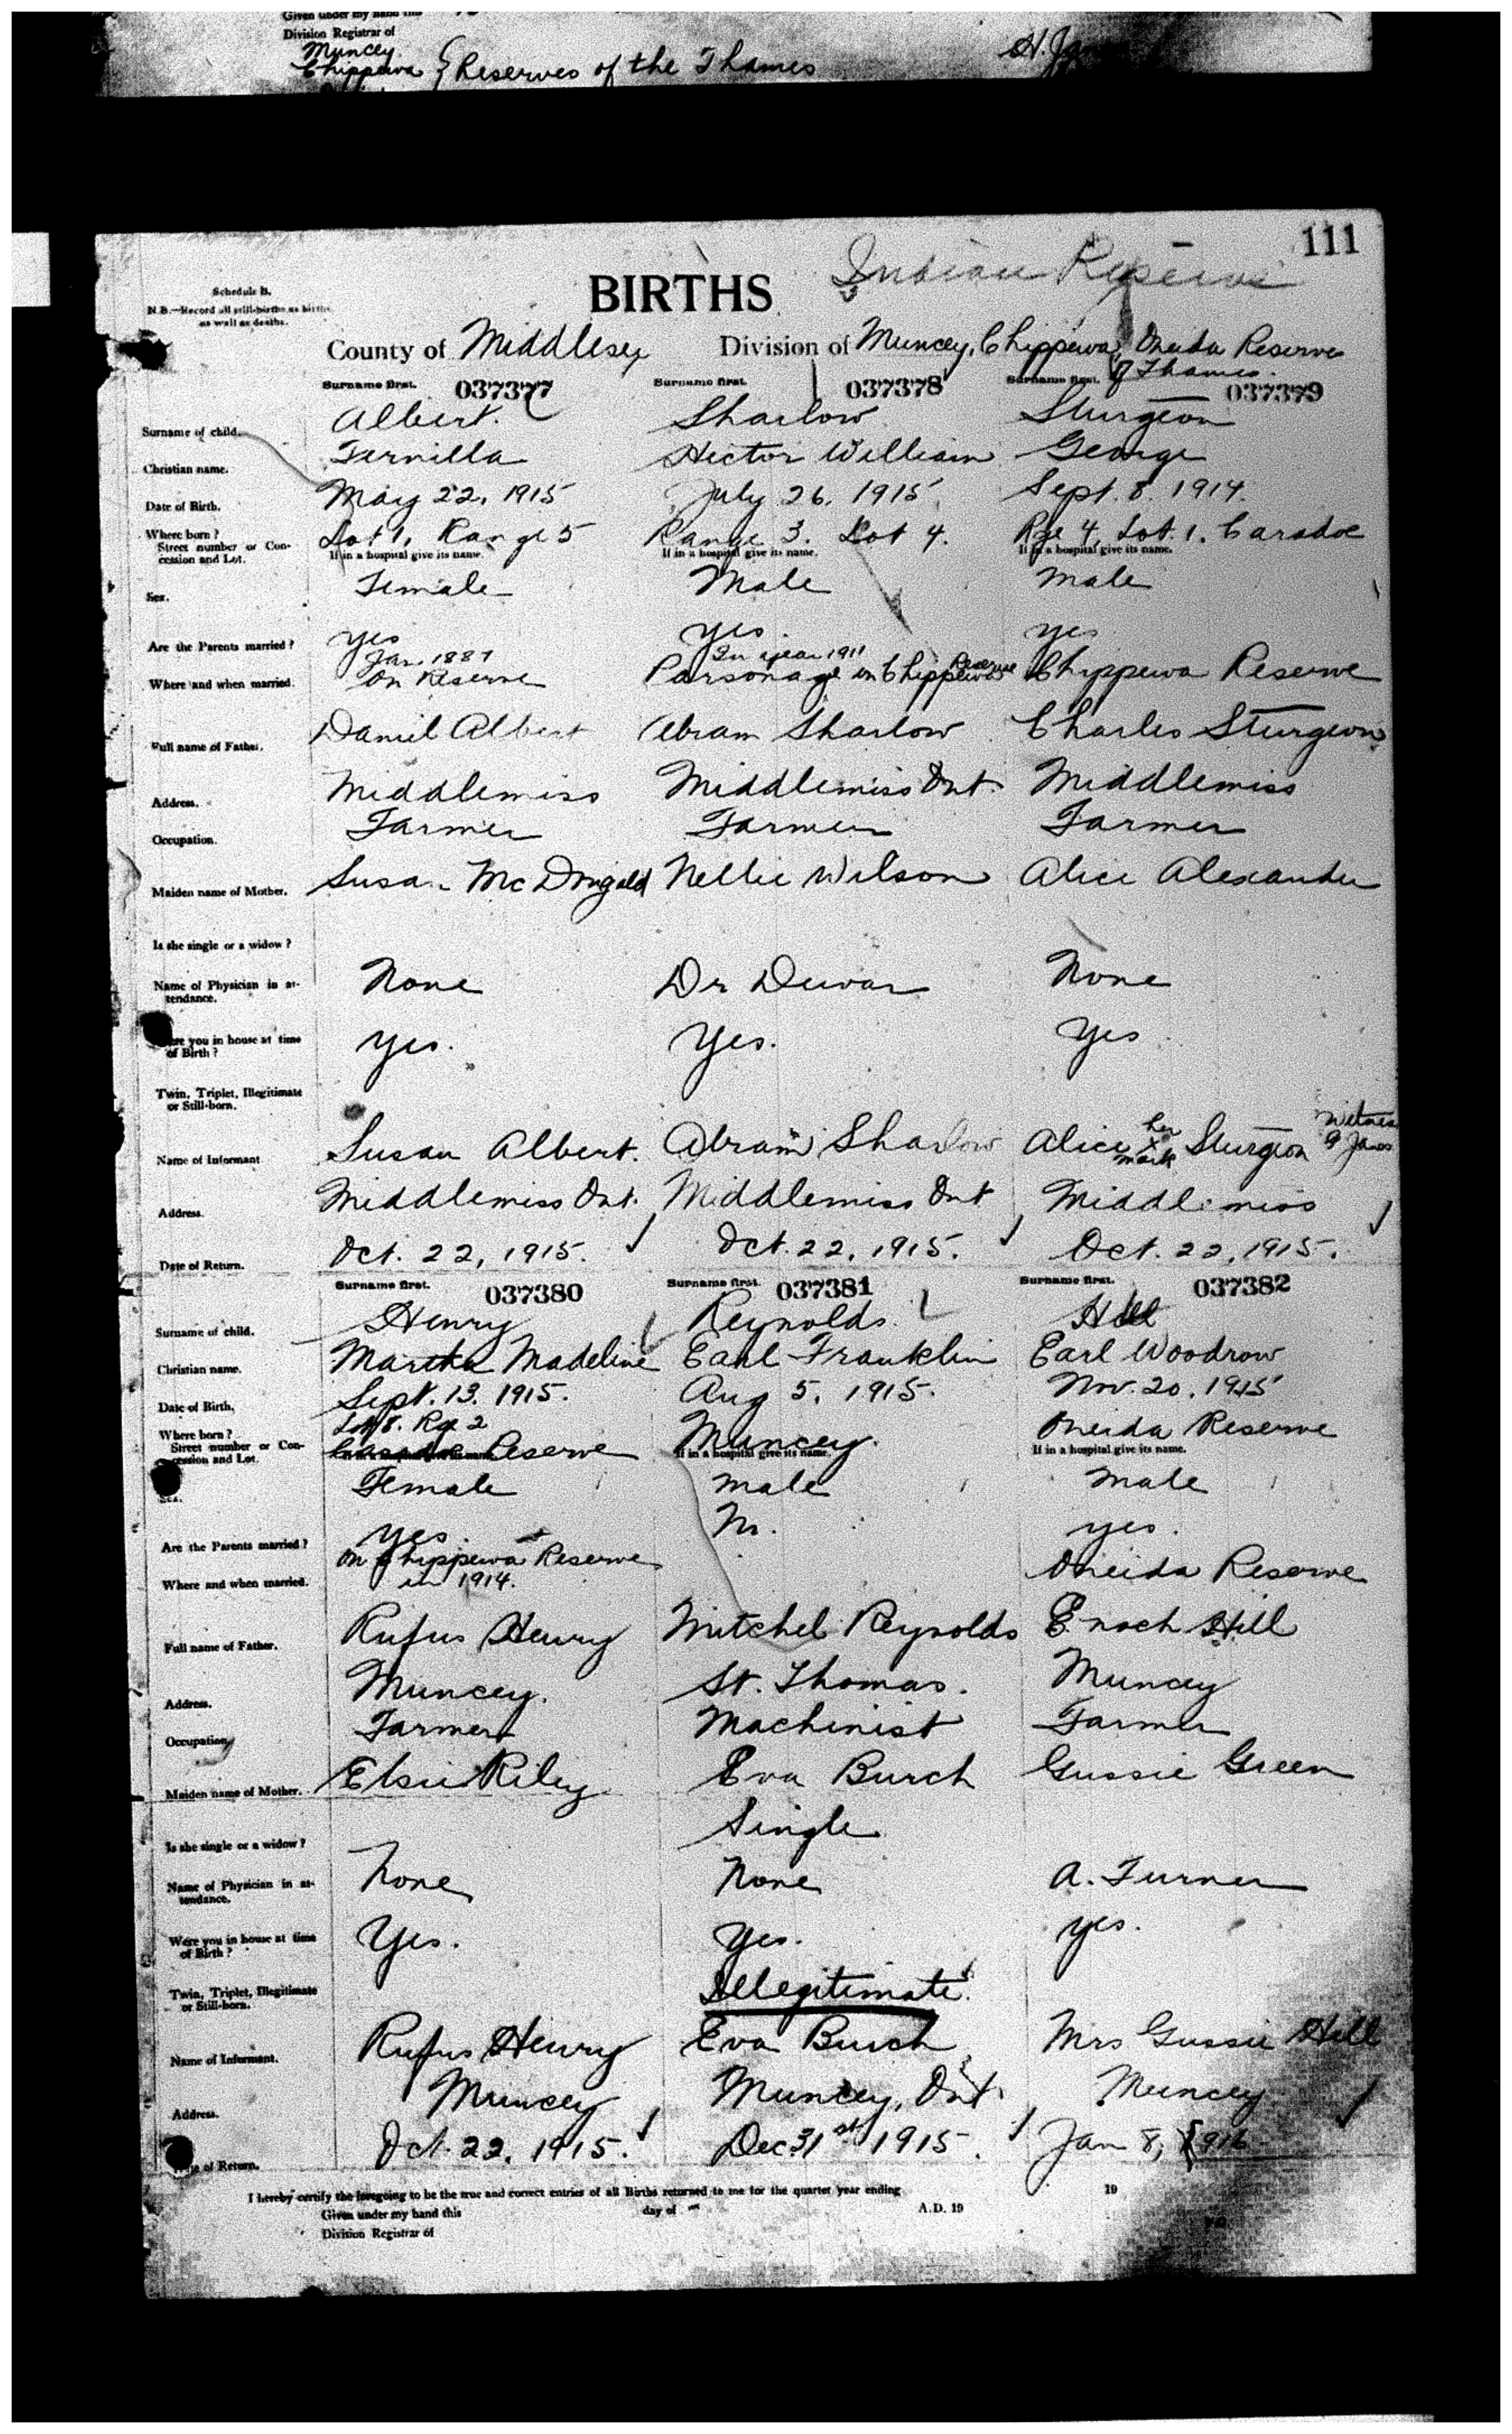 Given under my hand this
Division Registrar of
Muncey
Chippewa } Reserves of the Thames
111
Indian Reserve
Schedule B.
N.B.—Record all still-births as births
as well as deaths.
BIRTHS
County of Middlesex Division of Muncey, Chippewa, Oneida Reserve
of Thames.
Surname first. 037377 Surname first. 037378 Surname first. 037379
Surname of child. Albert. Sharlow Sturgeon
Christian name. Fernilla Hector William George
Date of Birth. May 22, 1915 July 26, 1915 Sept. 8. 1914.
Where born? Lot 1, Range 5 Range 3. Lot 4. Rge 4, Lot. 1. Caradoc
Street number or Concession and Lot. If in a hospital give its name. If in a hospital give its name. If in a hospital give its name.
Sex. Female Male male
Are the Parents married? yes yes. yes
Jan. 1887 In year 1911
Where and when married. on Reserve Parsonage on Chippewa Reserve Chippewa Reserve
Full name of Father. Daniel Albert Abram Sharlow Charles Sturgeon
Address. Middlemiss Middlemiss Ont. Middlemiss
Occupation. Farmer Farmer Farmer
Maiden name of Mother. Susan McDougald Nellie Wilson Alice Alexander
Is she single or a widow?
Name of Physician in attendance. None Dr Dewar None
Were you in house at time of Birth? yes. Yes. Yes
Twin, Triplet, Illegitimate or Still-born.
Name of Informant Susan Albert. Abram Sharlow Alice her x mark Sturgeon Witness
Address. Middlemiss Ont. Middlemiss Ont Middlemiss
Date of Return. Oct. 22, 1915. Oct. 22, 1915. Oct. 22, 1915.
Surname first. 037380 Surname first. 037381 Surname first. 037382
Surname of child. Henry Reynolds. Hill
Christian name. Martha Madeline Earl Franklin Earl Woodrow
Date of Birth. Sept. 13. 1915. Aug 5, 1915. Nov. 20, 1915
Where born? Lot 8. Rge 2 Muncey. Oneida Reserve
Street number or Concession and Lot. Reserve If in a hospital give its name. If in a hospital give its name.
Sex. Female male male
Are the Parents married? yes. No. yes.
Where and when married. on Chippewa Reserve Oneida Reserve
in 1914.
Full name of Father. Rufus Henry Mitchel Reynolds Enoch Hill
Address. Muncey. St. Thomas. Muncey
Occupation Farmer Machinist Farmer
Maiden name of Mother. Elsie Riley Eva Burch Gussie Green
Is she single or a widow? Single
Name of Physician in attendance. None None A. Turner
Were you in house at time of Birth? Yes. Yes. yes.
Twin, Triplet, Illegitimate or Still-born. Illegitimate
Name of Informant. Rufus Henry Eva Burch Mrs Gussie Hill
Address. Muncey Muncey, Ont. Muncey
Date of Return. Oct. 22, 1915. Dec. 31st 1915. Jan 8, 1916
I hereby certify the foregoing to be the true and correct entries of all Births returned to me for the quarter year ending 19
Given under my hand this day of A.D. 19
Division Registrar of